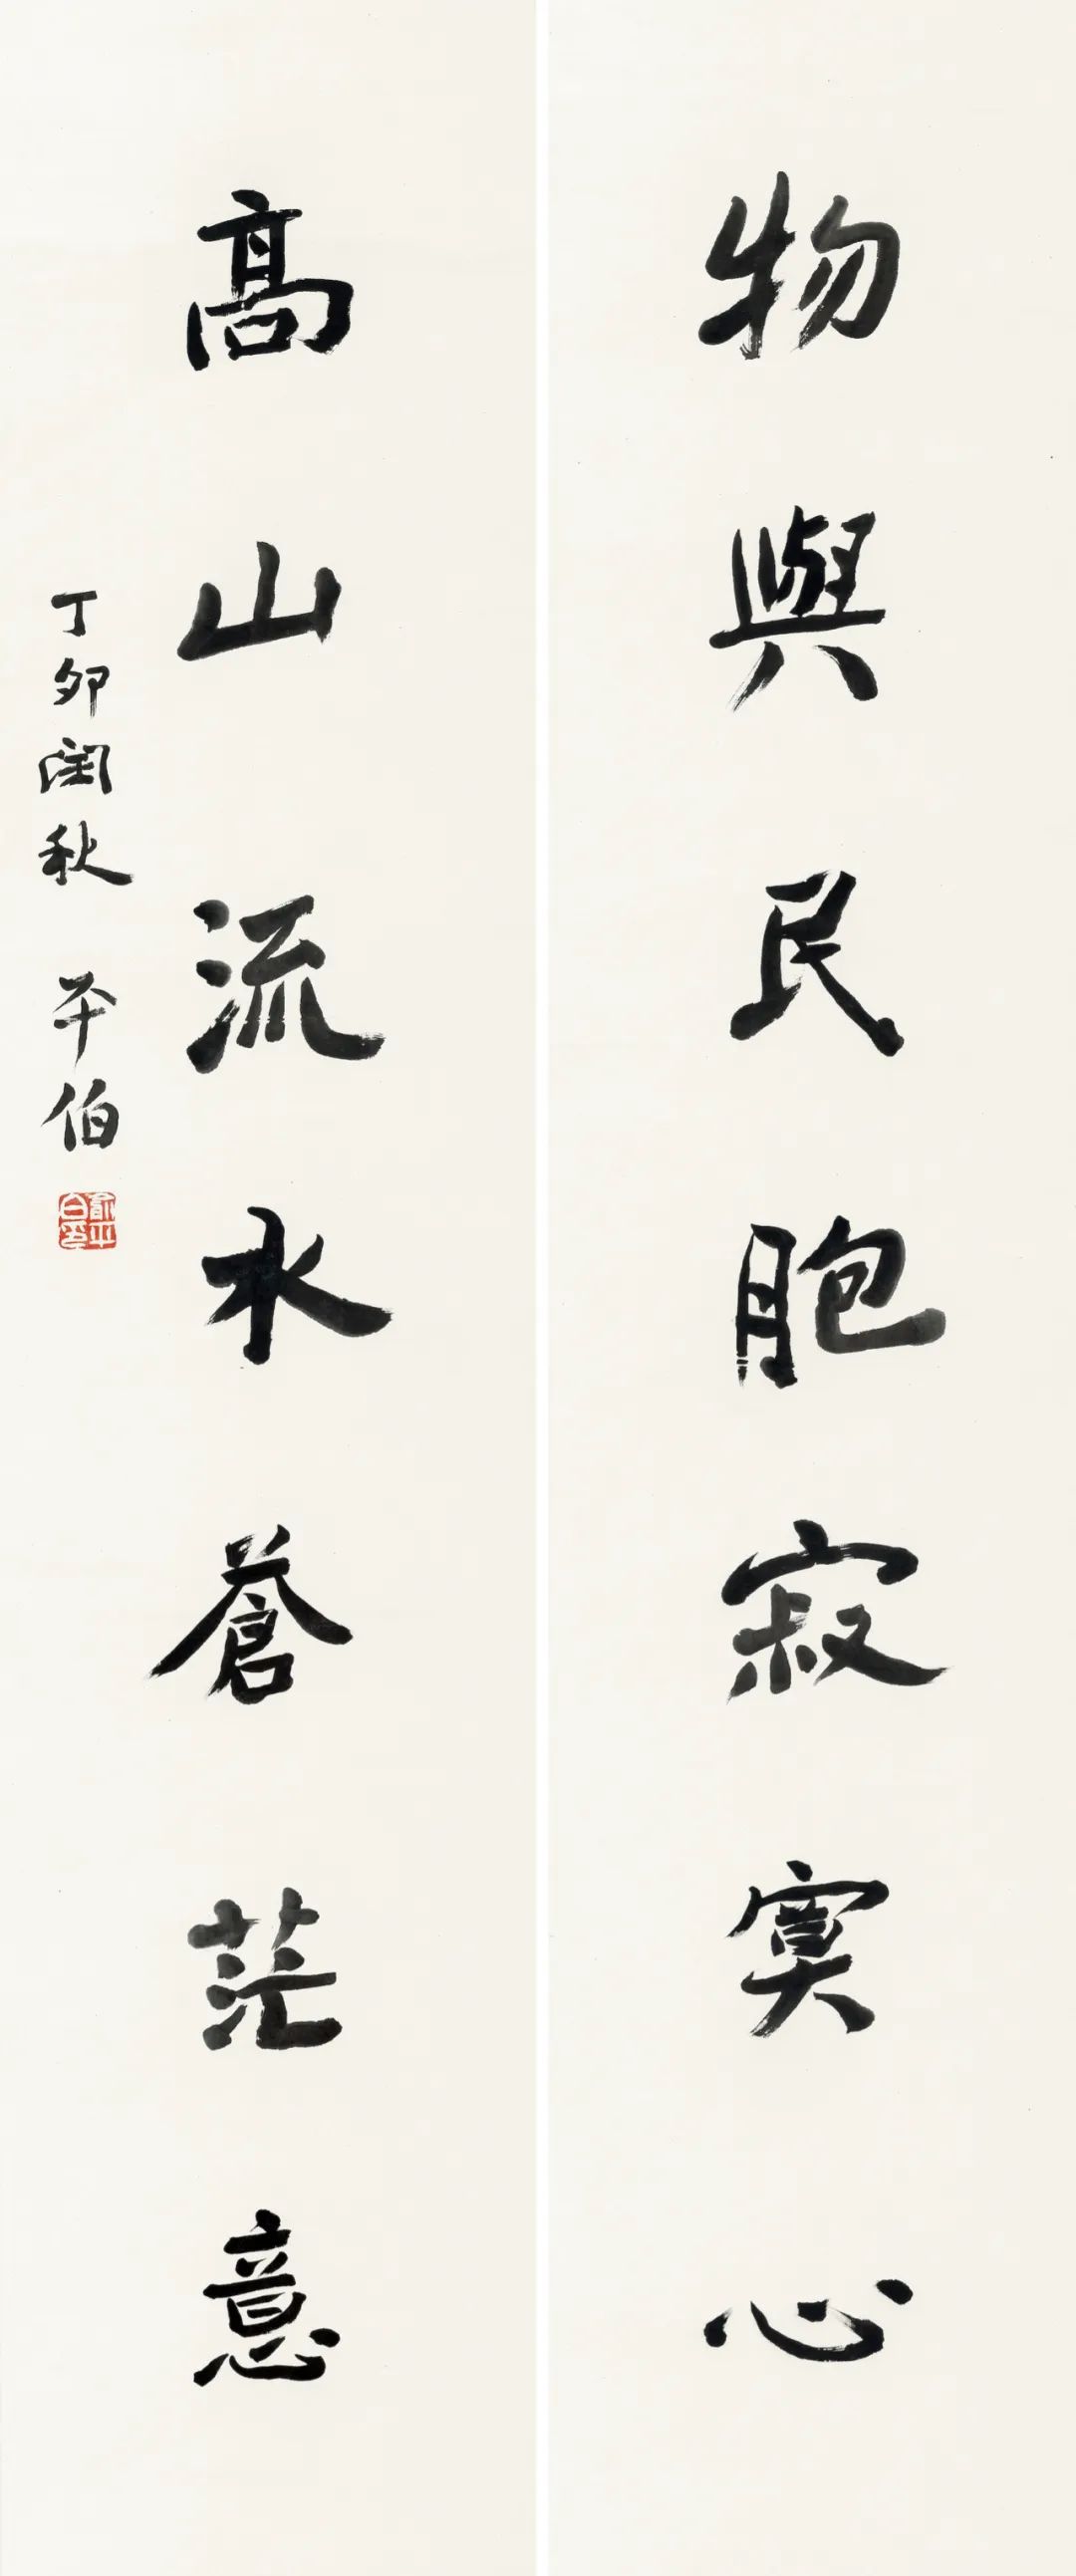 物與民胞寂寞心
高山流水蒼茫意
丁卯閏秋 平伯
俞平白印